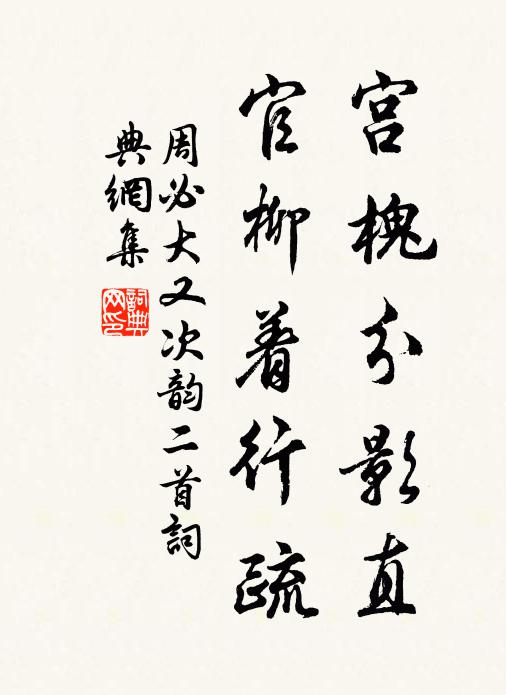 宫槐分影直
官柳着行疏
周必大又次韵二首詞
典網集
詞典网印